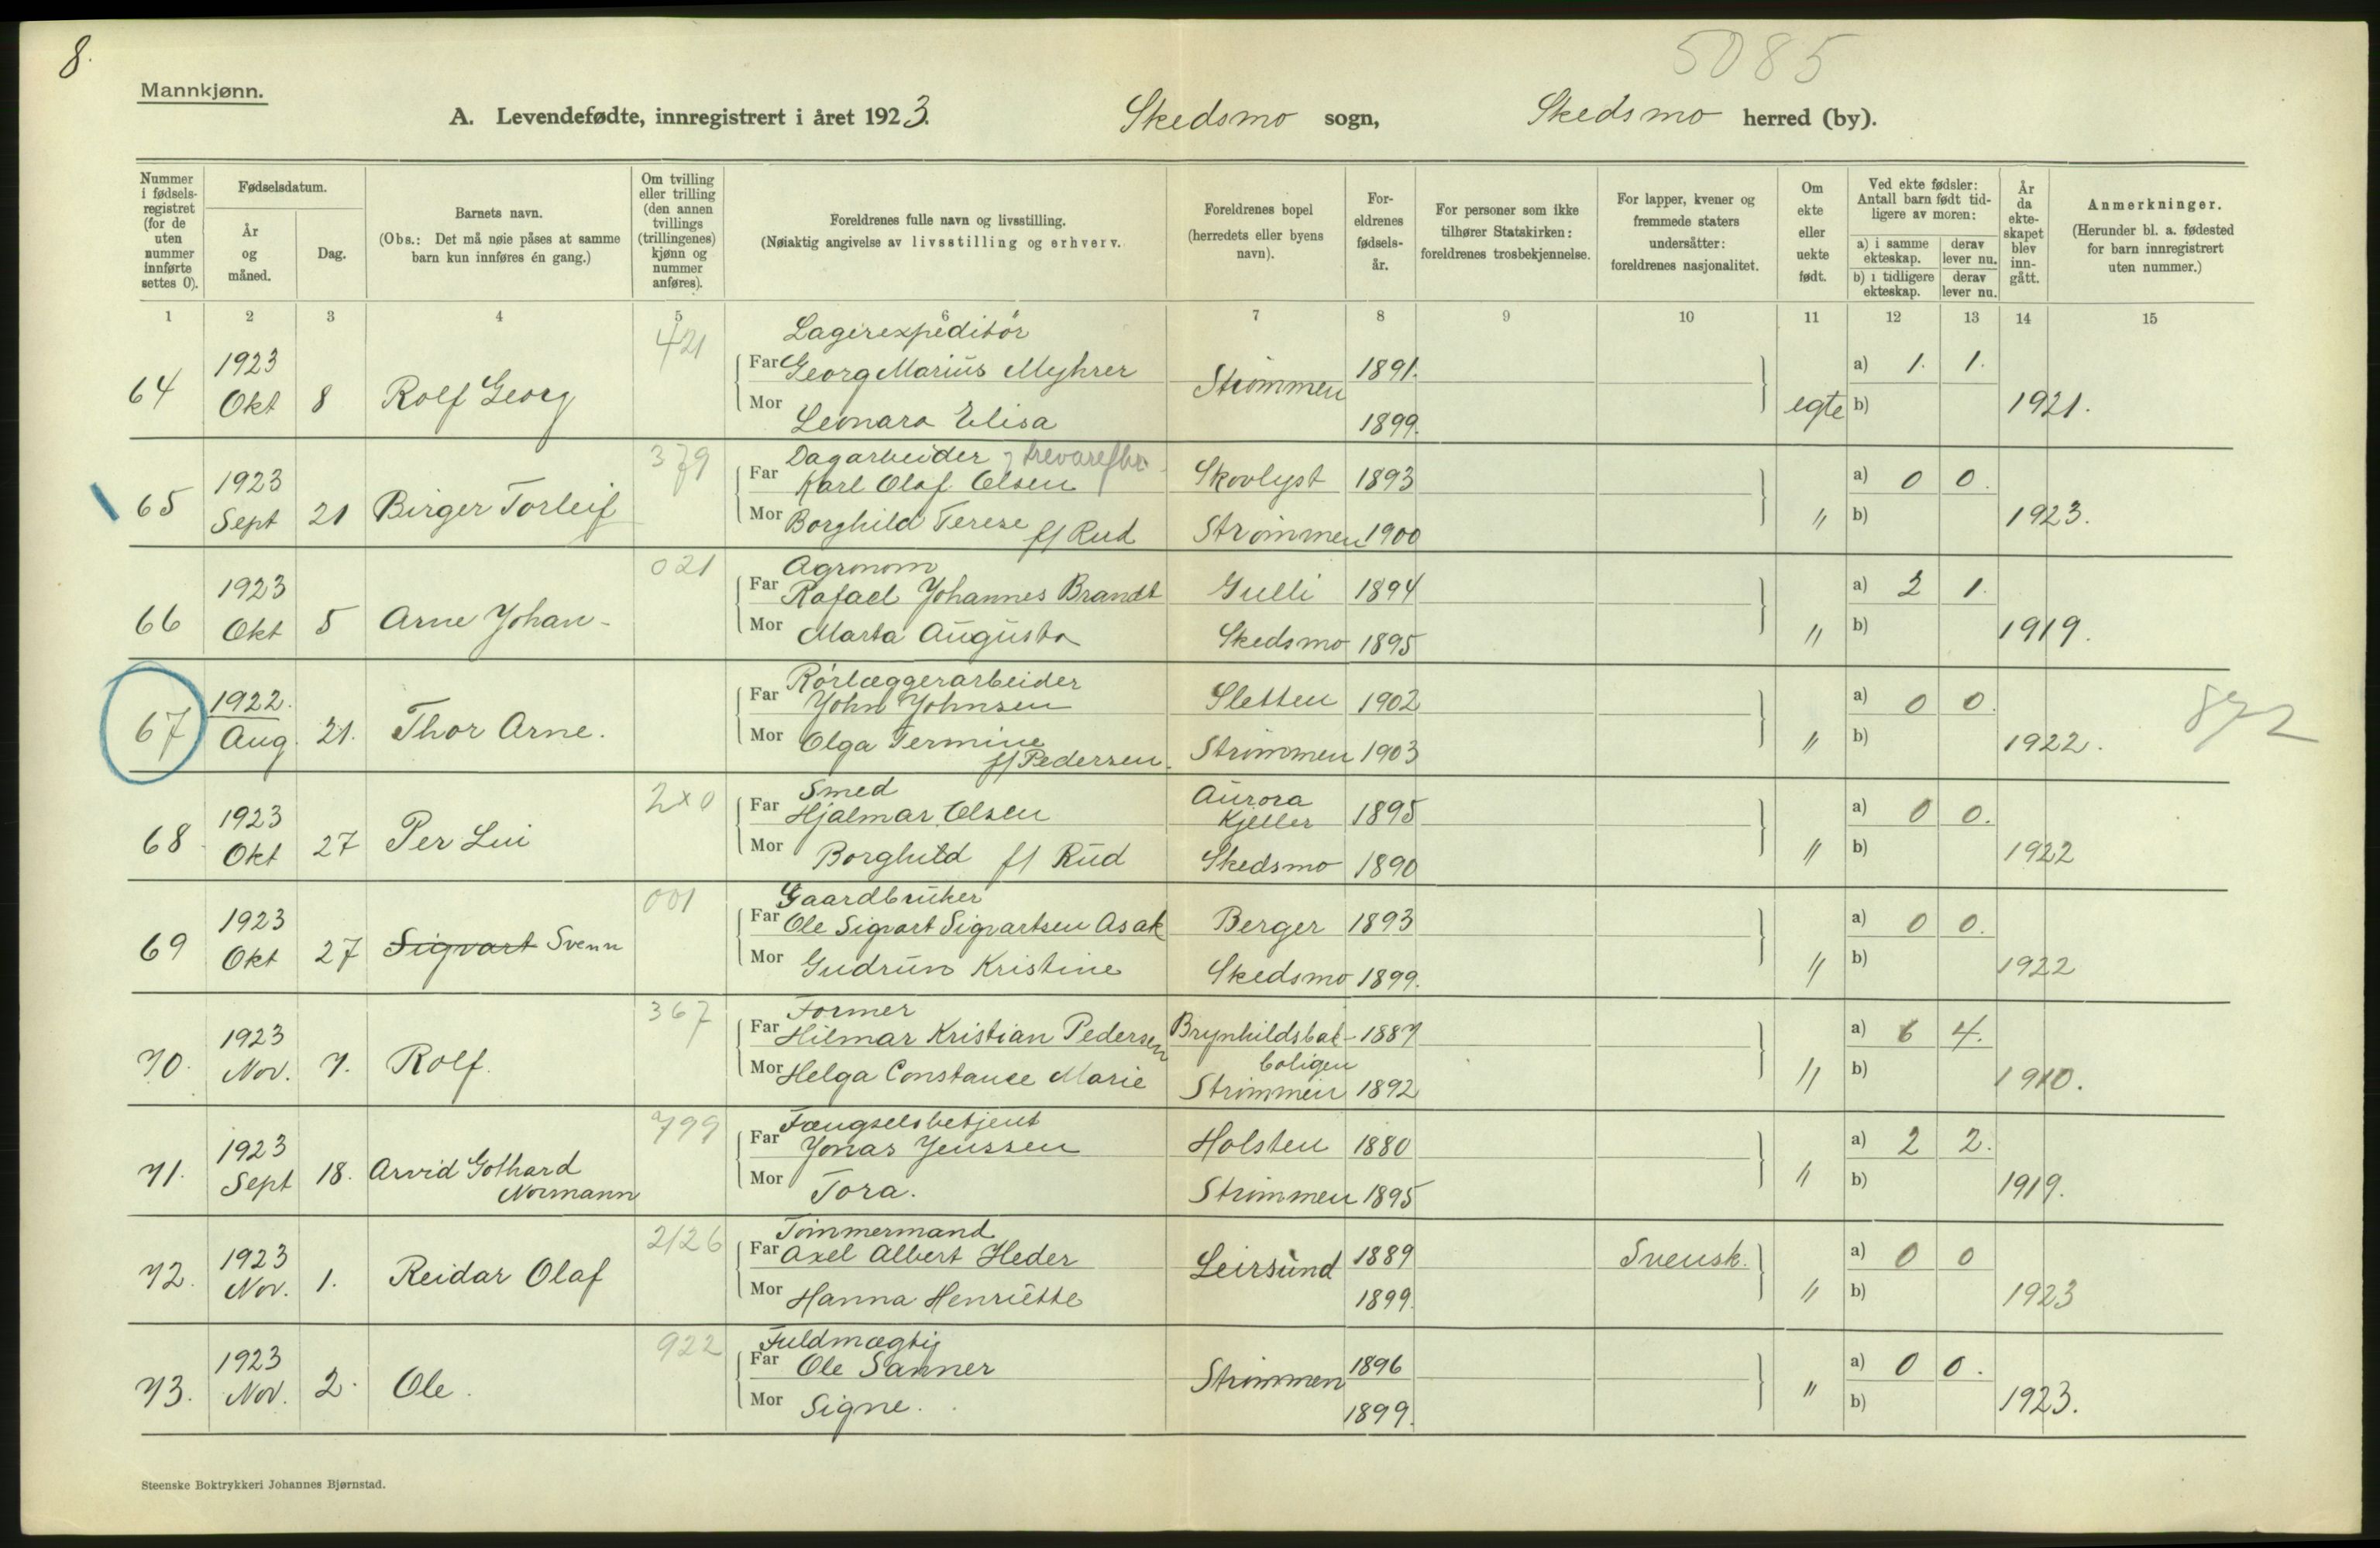 8.
5085
Mannkjønn.
A. Levendefødte, innregistrert i året 1923. Skedsmo sogn, Skedsmo herred (by).
Nummer i fødsels-registret (for de uten nummer innførte settes 0).
Fødselsdatum.
År og måned.
Dag.
Barnets navn.
(Obs.: Det må nøie påses at samme barn kun innføres én gang.)
Om tvilling eller trilling (den annen tvillings (trillingenes) kjønn og nummer anføres).
Foreldrenes fulle navn og livsstilling.
(Nøiaktig angivelse av livsstilling og erhverv.
Foreldrenes bopel (herredets eller byens navn).
For-eldrenes fødsels-år.
For personer som ikke tilhører Statskirken: foreldrenes trosbekjennelse.
For lapper, kvener og fremmede staters undersåtter: foreldrenes nasjonalitet.
Om ekte eller uekte født.
Ved ekte fødsler: Antall barn født tid-ligere av moren:
a) i samme ekteskap. derav lever nu.
b) i tidligere ekteskap. derav lever nu.
År da ekte-skapet blev inn-gått.
Anmerkninger.
(Herunder bl. a. fødested for barn innregistrert uten nummer.)
1 2 3 4 5 6 7 8 9 10 11 12 13 14 15
421 Lagerexpeditör
64 1923 Okt 8 Rolf Georg
Far Georg Marius Myhrer Strömmen 1891. a) 1. 1.
Mor Leonara Elisa 1899. egte b) 1921.
379 Dagarbeider, trevarefbr.
65 1923 Sept 21 Birger Torleif
Far Karl Olaf Olsen Skovlyst 1893 a) 0 0.
Mor Borghild Terese f/ Rud Strömmen 1900 " b) 1923.
021 Agronom
66 1923 Okt 5 Arne Johan -
Far Rafael Johannes Brandt Gulli 1894 a) 2 1.
Mor Marta Augusta Skedsmo 1895 " b) 1919.
Rörlæggerarbeider
67 1922. Aug. 21. Thor Arne.
Far John Johnsen Sletten 1902 a) 0 0. 872
Mor Olga Termine f/ Pedersen. Strömmen 1903 " b) 1922.
2x0 Smed
68 1923 Okt 27 Per Lui
Far Hjalmar Olsen Aurora Kjeller 1895 a) 0 0.
Mor Borghild f/ Rud Skedsmo 1890 " b) 1922
001 Gaardbruker
69 1923 Okt 27 Sigvart Svenn
Far Ole Sigvart Sigvartsen Asak Berger 1893 a) 0 0.
Mor Gudrun Kristine Skedsmo 1899. " b) 1922
367 Former
70. 1923 Nov. 7. Rolf.
Far Hilmar Kristian Pedersen Brynhildsbak- 1887 a) 6 4.
Mor Helga Constance Marie boligen Strömmen 1892 " b) 1910.
799 Fængselsbetjent
71. 1923 Sept 18. Arvid Gothard Normann
Far Jonas Jenssen Holsten 1880 a) 2 2.
Mor Tora. Strömmen 1895 " b) 1919.
2126 Tömmermand
72. 1923 Nov. 1. Reidar Olaf
Far Axel Albert Heder Leirsund 1889 Svensk. a) 0 0
Mor Hanna Henriette 1899. " b) 1923
922 Fuldmægtig
73. 1923 Nov. 2. Ole.
Far Ole Sanner Strömmen 1896 a) 0 0.
Mor Signe. 1899. " b) 1923.
Steenske Boktrykkeri Johannes Bjørnstad.